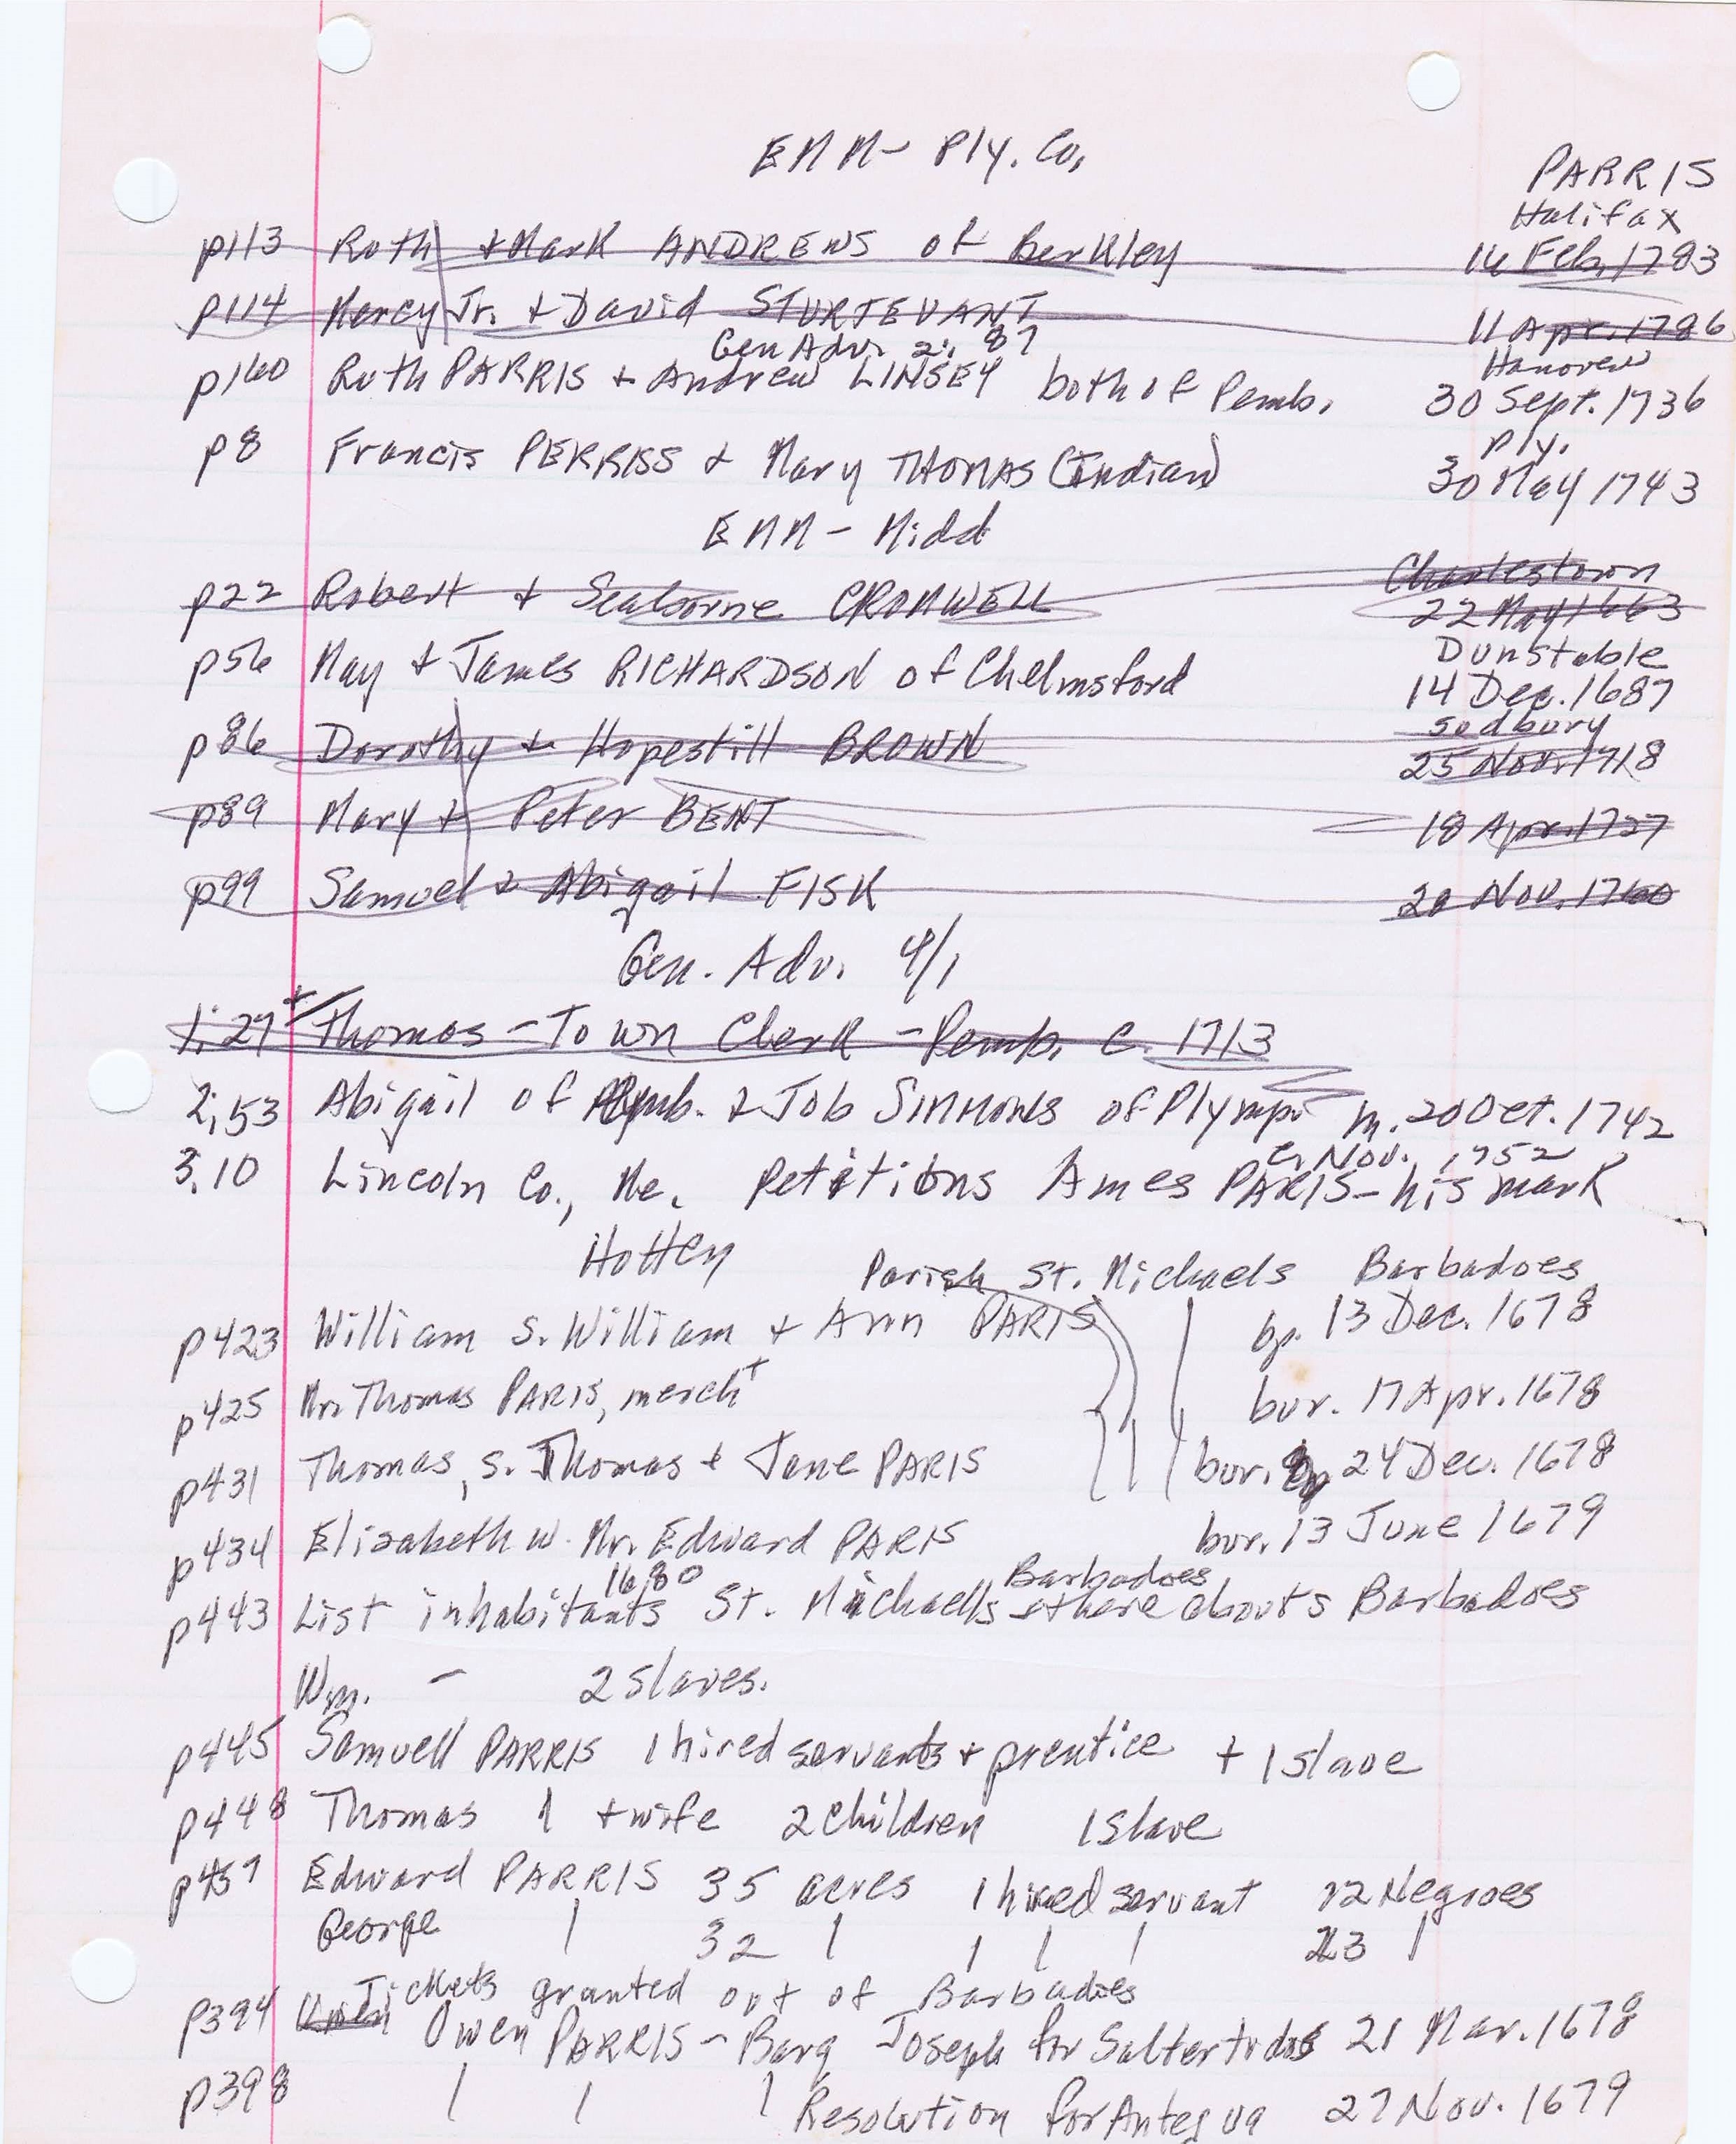 EMM - Ply. Co.
PARRIS
Halifax
p113 Ruth + Mark ANDREWS of Berkley 14 Feb. 1783
p114 Mercy Jr. + David STURTEVANT 11 Apr. 1786
Gen Adv. 2: 87
Hanover
p160 Ruth PARRIS + Andrew LINSEY both of Pemb. 30 Sept. 1736
Ply.
p8 Francis PERRISS + Mary THOMAS (Indian) 30 May 1743
EMM - Midd
Charlestown
p22 Robert + Seaborne CROMWELL 22 May 1663
Dunstable
p56 May + James RICHARDSON of Chelmsford 14 Dec. 1687
Sudbury
p86 Dorothy + Hopestill BROWN 25 Nov. 1718
p89 Mary + Peter BENT 18 Apr. 1727
p99 Samuel + Abigail FISK 20 Nov. 1760
Gen. Adv. 4/1
1:27 + Thomas - Town Clerk - Pemb. c. 1713
2:53 Abigail of Pemb. + Job SIMMONS of Plymp m. 20 Oct. 1742
c. Nov. 1752
3:10 Lincoln Co., Me. Petitions Ames PARIS - his mark
Hotten
Parish St. Michaels Barbadoes
p423 William s. William + Ann PARIS bp. 13 Dec. 1678
p425 Mr. Thomas PARIS, mercht bur. 17 Apr. 1678
p431 Thomas, s. Thomas + Jane PARIS bur. 24 Dec. 1678
p434 Elizabeth w. Mr. Edward PARIS bur. 13 June 1679
1680 Barbadoes
p443 List inhabitants St. Michaells + there abouts Barbadoes
Wm. - 2 slaves.
p445 Samuell PARRIS 1 hired servants + prentice + 1 slave
p448 Thomas 1 + wife 2 children 1 slave
p457 Edward PARRIS 35 acres 1 hired servant 22 Negroes
George 32 23
Tickets granted out of Barbadoes
p394 Owen PARRIS - Barq Joseph for Saltertudos 21 Mar. 1678
p398 Resolution for Antegua 27 Nov. 1679